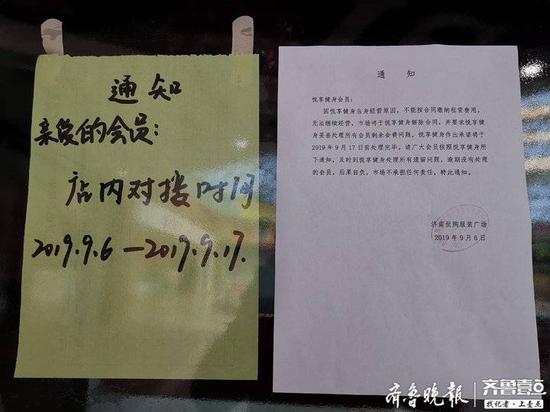 通知
亲爱的会员:
店内对接时间
2019.9.6—2019.9.17.
通 知
悦享健身会员:
因悦享健身自身经营原因,不能按合同缴纳租赁费用,
无法继续经营,市场将于悦享健身解除合同,并要求悦享健
身妥善处理所有会员剩余会费问题,悦享健身作出承诺将于
2019年9月17日前处理完毕。请广大会员按照悦享健身所
下通知,及时到悦享健身处理所有遗留问题,逾期没有处理
的会员,后果自负,市场不承担任何责任,特此通知。
济南世购服装广场
2019年9月6日
齐鲁晚报
齐鲁壹点
找记者·上壹点